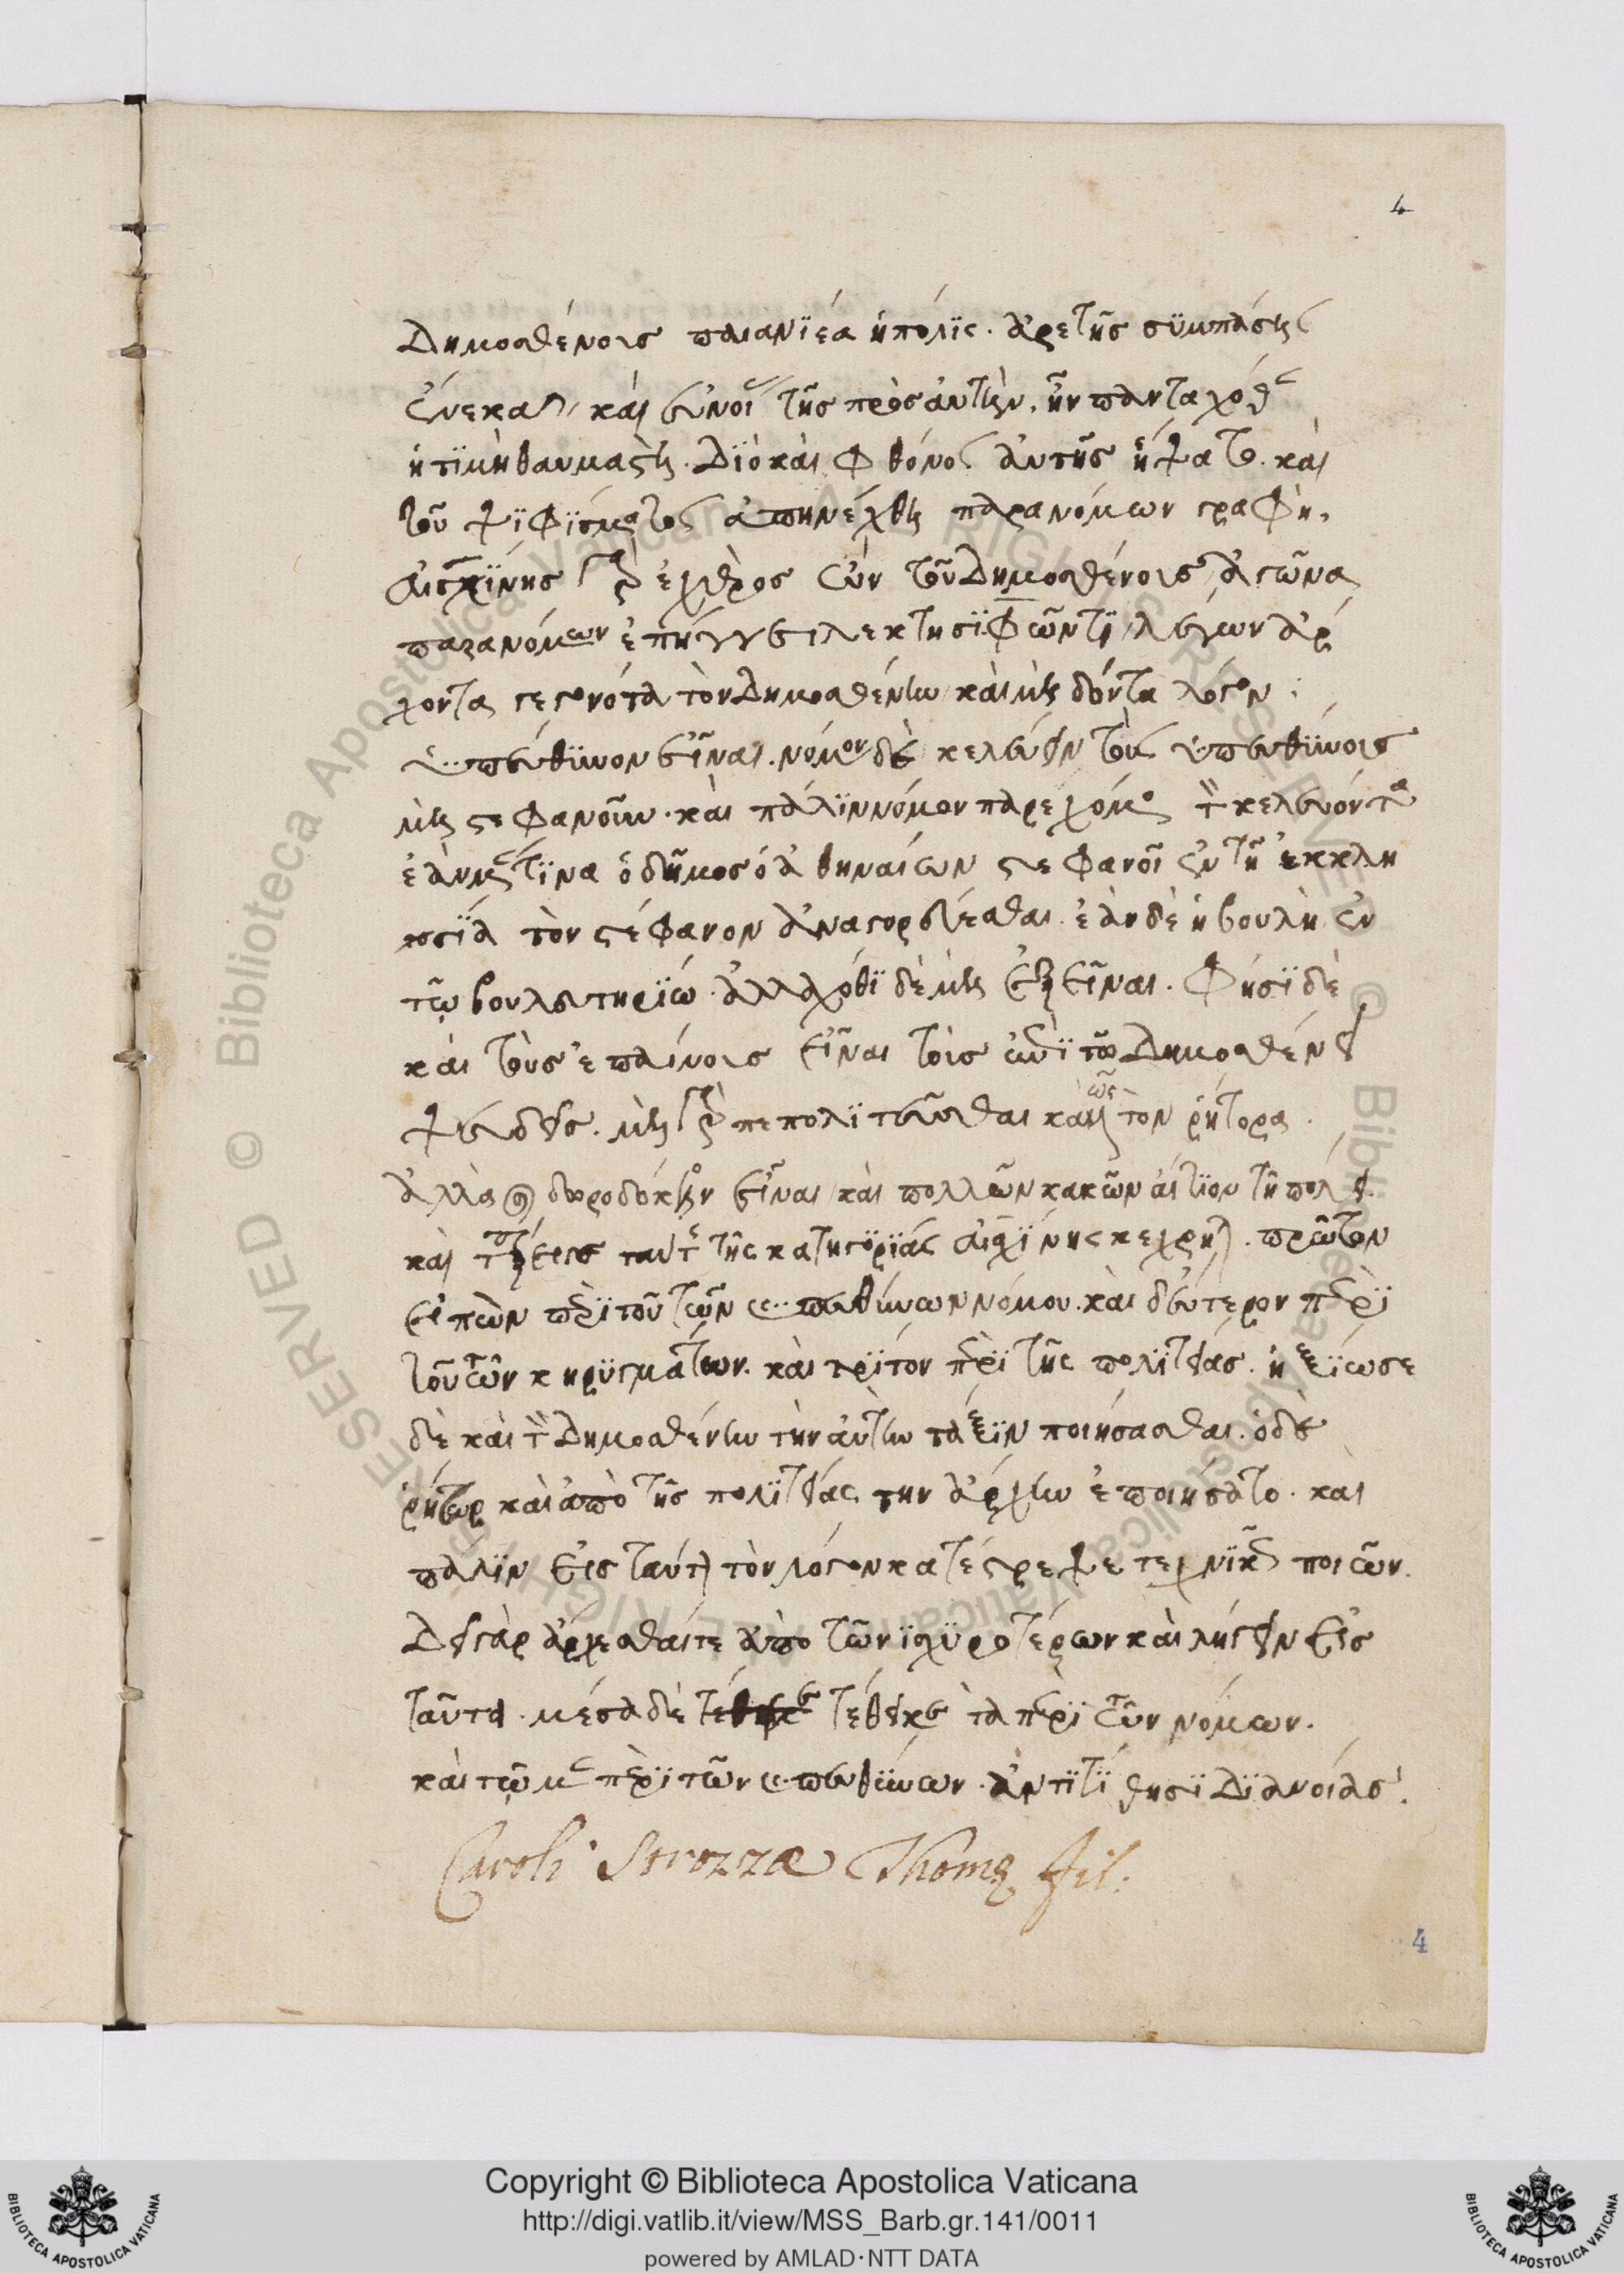 4
Δημοσθένους παιανϊέα ἡ πόλϊς. ἀρετῆς σϋμπάσης
ἕνεκα, καὶ εὐνοί τῆς πρὸς ἀυτὴν. ἦν πανταχόθ
ἡ τϊμὴ θαυμαστὴ. Δϊὸ καὶ φθόνος ἀυτῆς ἥψατο. καὶ
τοῦ ψϊφΐσματος ἀπηνέχθη παρανόμων γραφὴ.
Αἰσχΐνης γὰρ ἐχθρὸς ὢν τοῦ Δημοσθένους, ἀγῶνα
παρανόμων ἐπήγγειλε κτησϊφῶντϊ, λέγων ἄρ
χοντα γεγονότα τὸν Δημοσθένην, καὶ μὴ δόντα λόγον:
ὑπεύθϋνον εἶναι. νόμον δὲ κελεύειν τοὺς ὑπευθΰνους
μὴ στεφανοῦν. καὶ πάλϊν νόμον παρεχόμ τὸν κελεύοντα
ἐὰν μέν τϊνα ὁ δῆμος ὁ ἀθηναίων στεφανοῖ ἐν τῆ ἐκκλη
σΐα τὸν στέφανον ἀναγορεύεσθαι. ἐὰν δὲ ἡ βουλὴ ἐν
τῷ βουλευτηρΐω. ἀλλαχόθϊ δὲ μὴ ἐξεῖναι. Φήσϊ δὲ
καὶ τοὺς ἐπαίνους εἶναι τοὺς ἐπὶ τῶ Δημοσθένει
ψευδεῖς. μὴ γὰρ πεπολϊτεῦσθαι καλῶς τὸν ῥήτορα.
ἀλλὰ καὶ δωροδόκον εἶναι, καὶ πολλῶν κακῶν ἄιτϊον τῆ πόλει.
καὶ τάξει ταύτῃ τῆς κατηγορΐας ἀισχΐνης κεχρηται. πρῶτον
εἰπὼν περὶ τοῦ τῶν ὑπευθΰνων νόμου. καὶ δεύτερον περὶ
τοῦ τῶν κηρϋγμάτων. καὶ τρΐτον περὶ τῆς πολϊτείας. ἠξΐωσε
δὲ καὶ τὸν Δημοσθένην τὴν ἀυτὴν τάξϊν ποιήσασθαι. ὁ δὲ
ῥήτωρ καὶ ἀπὸ τῆς πολϊτείας την ἀρχὴν ἐποιήσατο. καὶ
πάλϊν εἰς ταύτην τὸν λόγον κατέστρεψε τεχνϊκῶς ποιῶν.
Δεῖ γὰρ ἄρχεσθαί τε ἀπὸ τῶν ϊσχϋροτέρων καὶ λήγειν εἰς
ταῦτα. μέσα δὲ τέθεικε τὰ περὶ τῶν νόμων.
καὶ τῷ μὲν περὶ τῶν ὑπευθΰνων. ἀντϊτΐθησϊ Δϊάνοιας.
Caroli Strozzæ Thomæ fil.
4
Copyright © Biblioteca Apostolica Vaticana
http://digi.vatlib.it/view/MSS_Barb.gr.141/0011
powered by AMLAD·NTT DATA